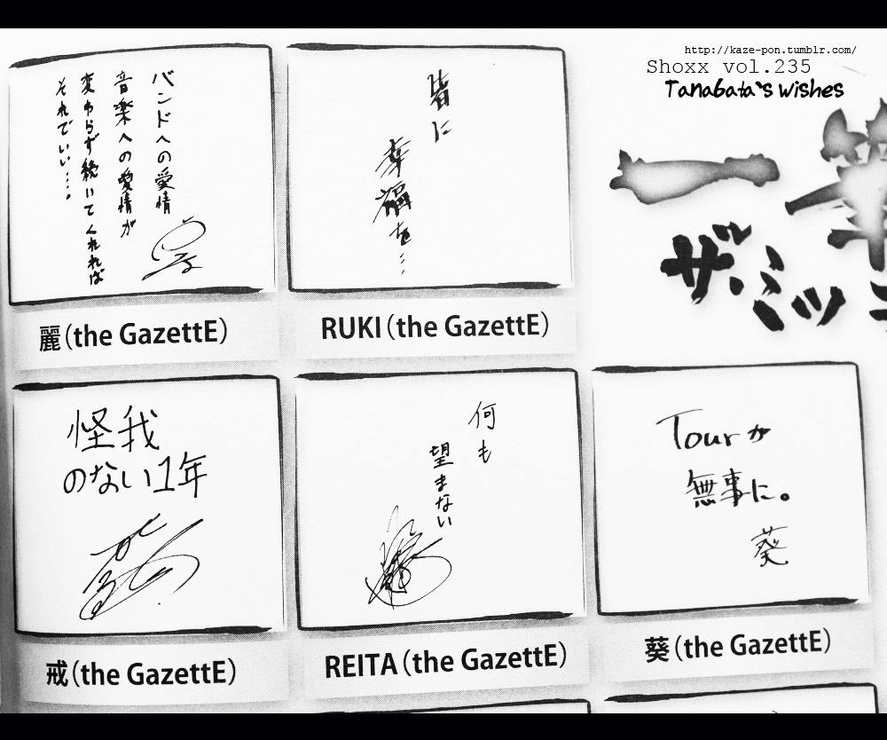 http://kaze-pon.tumblr.com/
Shoxx vol.235
Tanabata's wishes
バンドへの愛情
音楽への愛情が
変わらず続いてくれれば
それでいい…。
麗(the GazettE)
皆に
幸福を…
RUKI(the GazettE)
一
ザ・ミッ
怪我
のない1年
戒(the GazettE)
何も
望まない
REITA(the GazettE)
Tourが
無事に。
葵
葵(the GazettE)